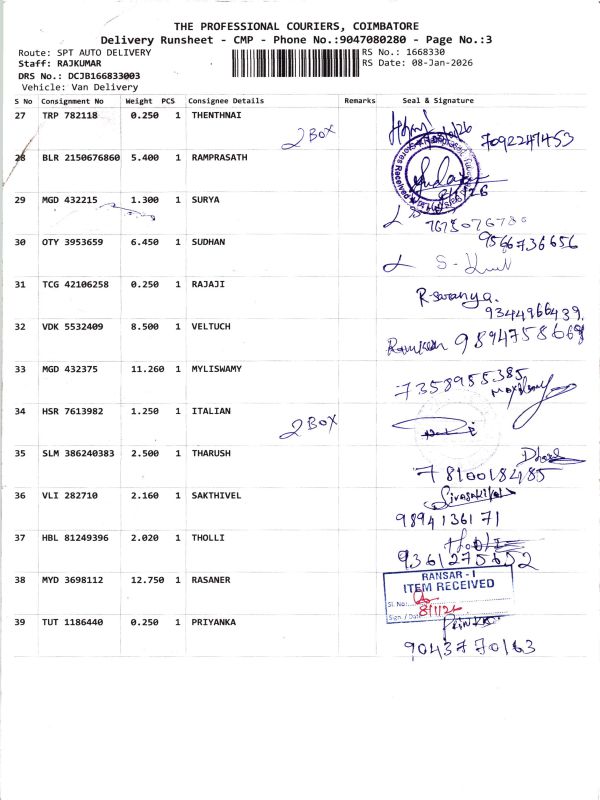 THE PROFESSIONAL COURIERS, COIMBATORE
Delivery Runsheet - CMP - Phone No.:9047080280 - Page No.:3
Route: SPT AUTO DELIVERY
RS No.: 1668330
Staff: RAJKUMAR
RS Date: 08-Jan-2026
DRS No.: DCJB166833003
Vehicle: Van Delivery
S No Consignment No Weight PCS Consignee Details Remarks Seal & Signature
27 TRP 782118 0.250 1 THENTHNAI
2 BOX
7092247453
28 BLR 2150676860 5.400 1 RAMPRASATH
29 MGD 432215 1.300 1 SURYA
30 OTY 3953659 6.450 1 SUDHAN
9566736656
31 TCG 42106258 0.250 1 RAJAJI
R-Saranya.
9344966439.
32 VDK 5532409 8.500 1 VELTUCH
9894758669
33 MGD 432375 11.260 1 MYLISWAMY
7358955385
34 HSR 7613982 1.250 1 ITALIAN
2 BOX
35 SLM 386240383 2.500 1 THARUSH
7810018485
36 VLI 282710 2.160 1 SAKTHIVEL
Sivasakthi
9894136171
37 HBL 81249396 2.020 1 THOLLI
9361275652
38 MYD 3698112 12.750 1 RASANER
RANSAR - I
ITEM RECEIVED
Sl. No:
Sign. / Date 8/1/26
39 TUT 1186440 0.250 1 PRIYANKA
9043770163